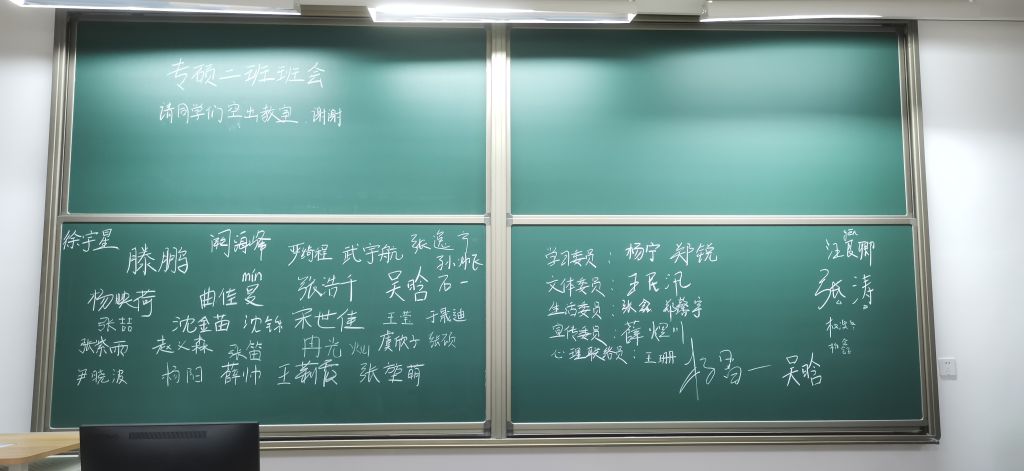 专硕二班班会
请同学们空出教室.谢谢
徐宇星 滕鹏 阎海峰 严钧程 武宇航 张逸宁
孙
min
杨映荷 曲佳旻 张浩千 吴晗 石一
张喆 沈金苗 沈铄 宋世佳 王莹 于晨迪
张紫雨 赵义森 张笛 冉光灿 虞欣子 张硕
尹晓波 杨阳 薛帅 王莉霞 张堃萌
学习委员：杨宁 郑锐
文体委员：王民汛
生活委员：张磊 郝馨宇
宣传委员：薛煜川
心理联络员：王珊
杨 一 吴晗
汪 卿
张涛